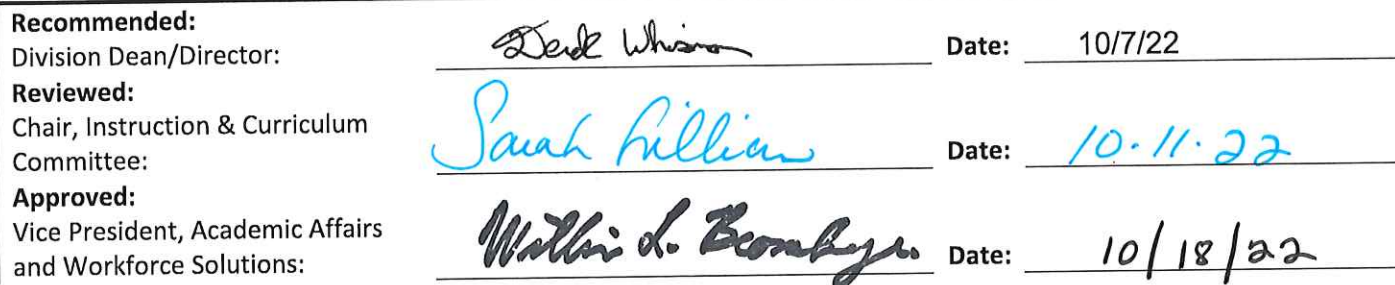 Recommended:
Division Dean/Director: Derek Whisman Date: 10/7/22
Reviewed:
Chair, Instruction & Curriculum
Committee: Sarah Lillian Date: 10.11.22
Approved:
Vice President, Academic Affairs
and Workforce Solutions: L. Date: 10/18/22